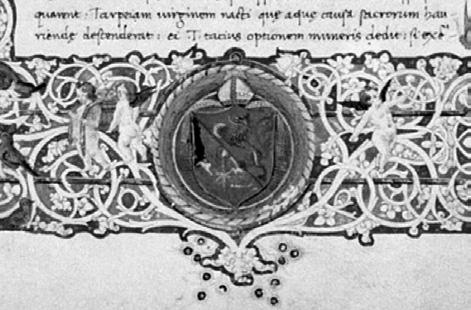 quarent: Tarpeiam uirginem nacti que aque causa sacrorum hau
riende descenderat: ei T. tacius optionem muneris dedit: si exce